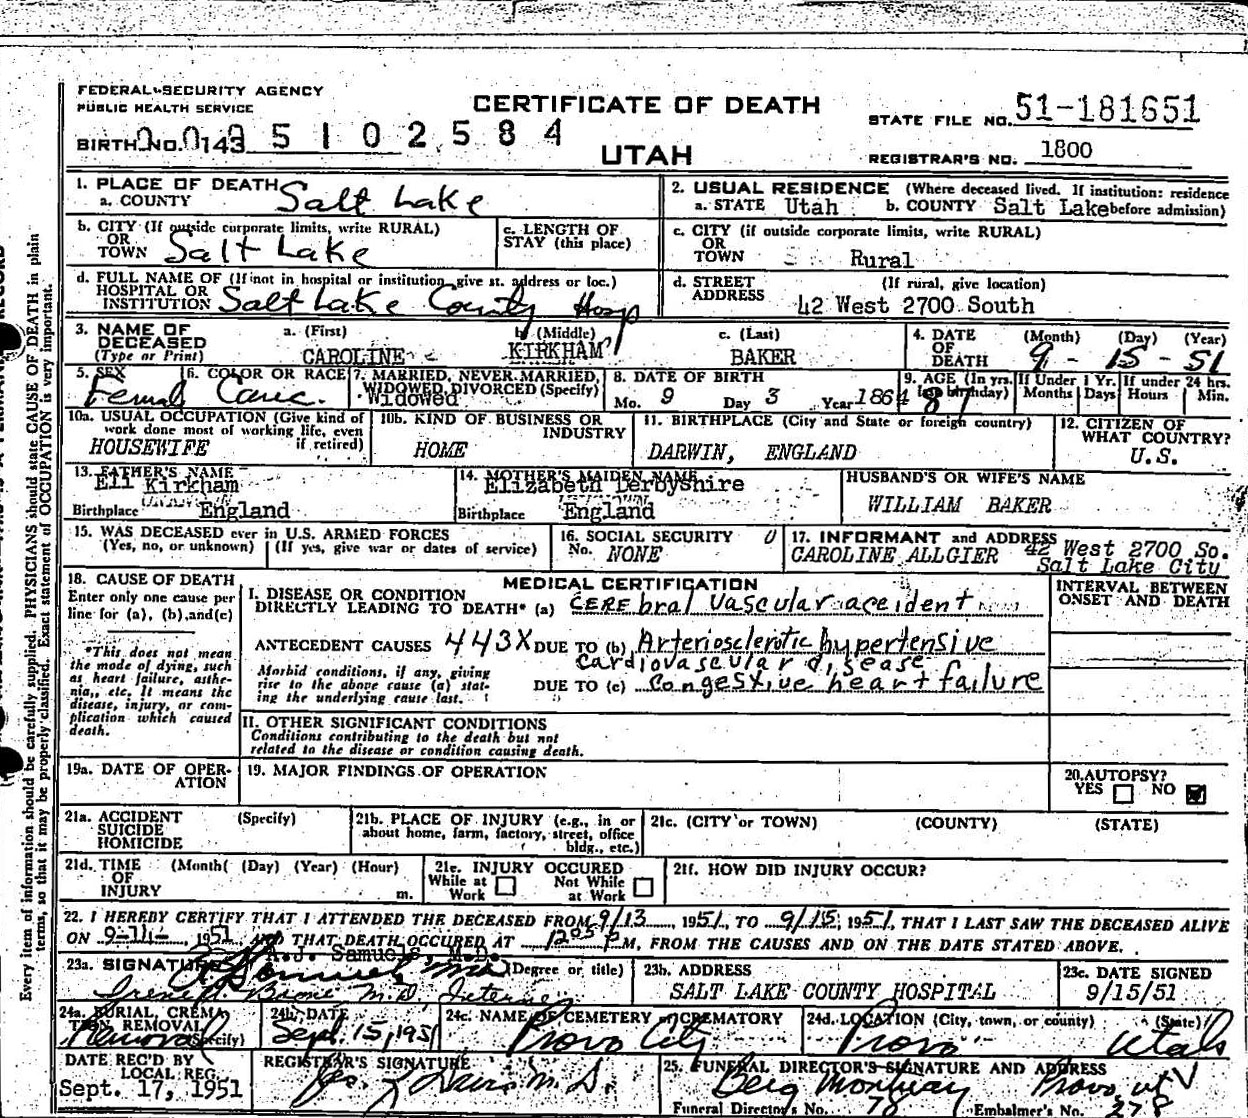 FEDERAL SECURITY AGENCY
PUBLIC HEALTH SERVICE
CERTIFICATE OF DEATH
STATE FILE NO. 51-181651
BIRTH NO. 0143 5 1 0 2 5 8 4
UTAH
REGISTRAR'S NO. 1800
1. PLACE OF DEATH
a. COUNTY Salt Lake
2. USUAL RESIDENCE (Where deceased lived. If institution: residence before admission)
a. STATE Utah b. COUNTY Salt Lake
b. CITY (If outside corporate limits, write RURAL)
OR
TOWN Salt Lake
c. LENGTH OF
STAY (this place)
c. CITY (if outside corporate limits, write RURAL)
OR
TOWN Rural
d. FULL NAME OF (If not in hospital or institution, give st. address or loc.)
HOSPITAL OR
INSTITUTION Salt Lake County Hosp
d. STREET (If rural, give location)
ADDRESS 42 West 2700 South
3. NAME OF
DECEASED
(Type or Print)
a. (First) CAROLINE
b. (Middle) KIRKHAM
c. (Last) BAKER
4. DATE
OF
DEATH
(Month) (Day) (Year)
9 - 15 - 51
5. SEX Female
6. COLOR OR RACE Cauc.
7. MARRIED, NEVER MARRIED,
WIDOWED, DIVORCED (Specify)
Widowed
8. DATE OF BIRTH
Mo. 9 Day 3 Year 1864
9. AGE (In yrs. last birthday) 87
If Under 1 Yr.
Months Days
If under 24 hrs.
Hours Min.
10a. USUAL OCCUPATION (Give kind of
work done most of working life, even
if retired)
HOUSEWIFE
10b. KIND OF BUSINESS OR
INDUSTRY
HOME
11. BIRTHPLACE (City and State or foreign country)
DARWIN, ENGLAND
12. CITIZEN OF
WHAT COUNTRY?
U.S.
13. FATHER'S NAME
Eli Kirkham
Birthplace England
14. MOTHER'S MAIDEN NAME
Elizabeth Derbyshire
Birthplace England
HUSBAND'S OR WIFE'S NAME
WILLIAM BAKER
15. WAS DECEASED ever in U.S. ARMED FORCES
(Yes, no, or unknown) (If yes, give war or dates of service)
16. SOCIAL SECURITY
No. NONE
17. INFORMANT and ADDRESS
CAROLINE ALLGIER 42 West 2700 So.
Salt Lake City
18. CAUSE OF DEATH
Enter only one cause per
line for (a), (b), and (c)
*This does not mean
the mode of dying, such
as heart failure, asthe-
nia, etc. It means the
disease, injury, or com-
plication which caused
death.
MEDICAL CERTIFICATION
I. DISEASE OR CONDITION
DIRECTLY LEADING TO DEATH* (a) CEREbral vascular accident
ANTECEDENT CAUSES 443X DUE TO (b) Arteriosclerotic hypertensive
cardiovascular disease
Morbid conditions, if any, giving
rise to the above cause (a) stat-
ing the underlying cause last.
DUE TO (c) Congestive heart failure
INTERVAL BETWEEN
ONSET AND DEATH
II. OTHER SIGNIFICANT CONDITIONS
Conditions contributing to the death but not
related to the disease or condition causing death.
19a. DATE OF OPER-
ATION
19. MAJOR FINDINGS OF OPERATION
20. AUTOPSY?
YES NO
21a. ACCIDENT (Specify)
SUICIDE
HOMICIDE
21b. PLACE OF INJURY (e.g., in or
about home, farm, factory, street, office
bldg., etc.)
21c. (CITY or TOWN) (COUNTY) (STATE)
21d. TIME (Month) (Day) (Year) (Hour)
OF
INJURY m.
21e. INJURY OCCURED
While at Work Not While at Work
21f. HOW DID INJURY OCCUR?
22. I HEREBY CERTIFY THAT I ATTENDED THE DECEASED FROM 9/13 1951, TO 9/15, 1951, THAT I LAST SAW THE DECEASED ALIVE
ON 9-14-, 1951, AND THAT DEATH OCCURED AT 12 05 P M, FROM THE CAUSES AND ON THE DATE STATED ABOVE.
23a. SIGNATURE A.J. Samuels, M.D. (Degree or title)
M.D., Intern
23b. ADDRESS
SALT LAKE COUNTY HOSPITAL
23c. DATE SIGNED
9/15/51
24a. BURIAL, CREMA-
TION, REMOVAL (Specify)
Removal
24b. DATE
Sept. 15, 1951
24c. NAME OF CEMETERY or CREMATORY
Provo City
24d. LOCATION (City, town, or county) (State)
Provo Utah
DATE REC'D BY
LOCAL REG.
Sept. 17, 1951
REGISTRAR'S SIGNATURE
25. FUNERAL DIRECTOR'S SIGNATURE AND ADDRESS
Berg Mortuary Provo, Ut
Funeral Director's No. 78 Embalmer's No. 278
Every item of information should be carefully supplied. PHYSICIANS should state CAUSE OF DEATH in plain
terms, so that it may be properly classified. Exact statement of OCCUPATION is very important.